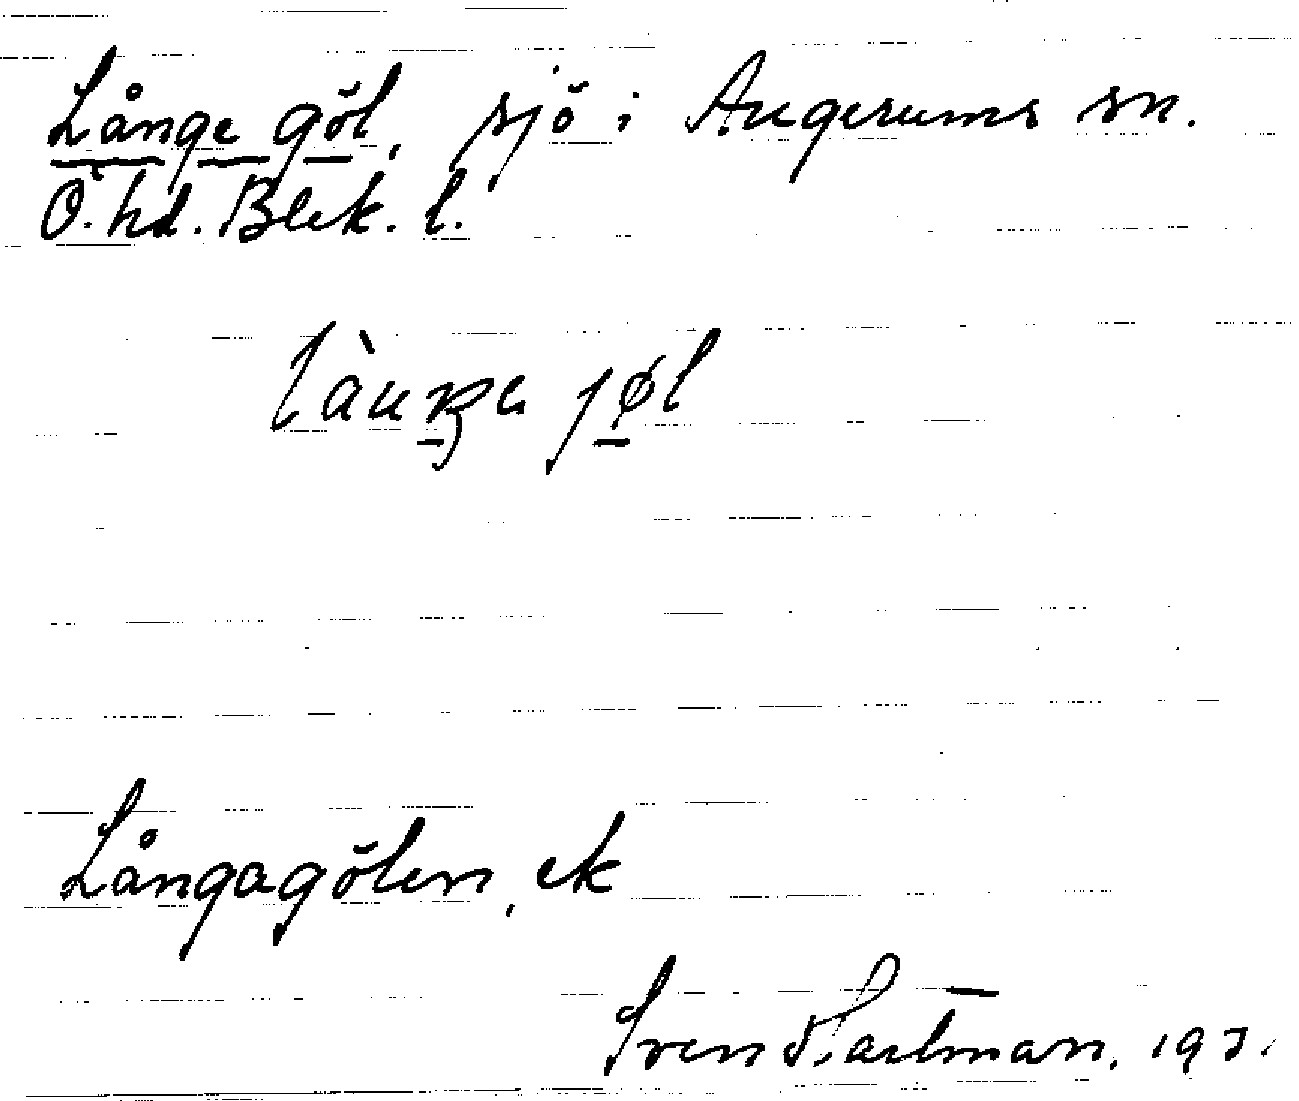 Långe göl, sjö i Augerums sn.
Ö. hd. Blek. l.
jøl
Långagölen, ek
Sven Hartman. 193.